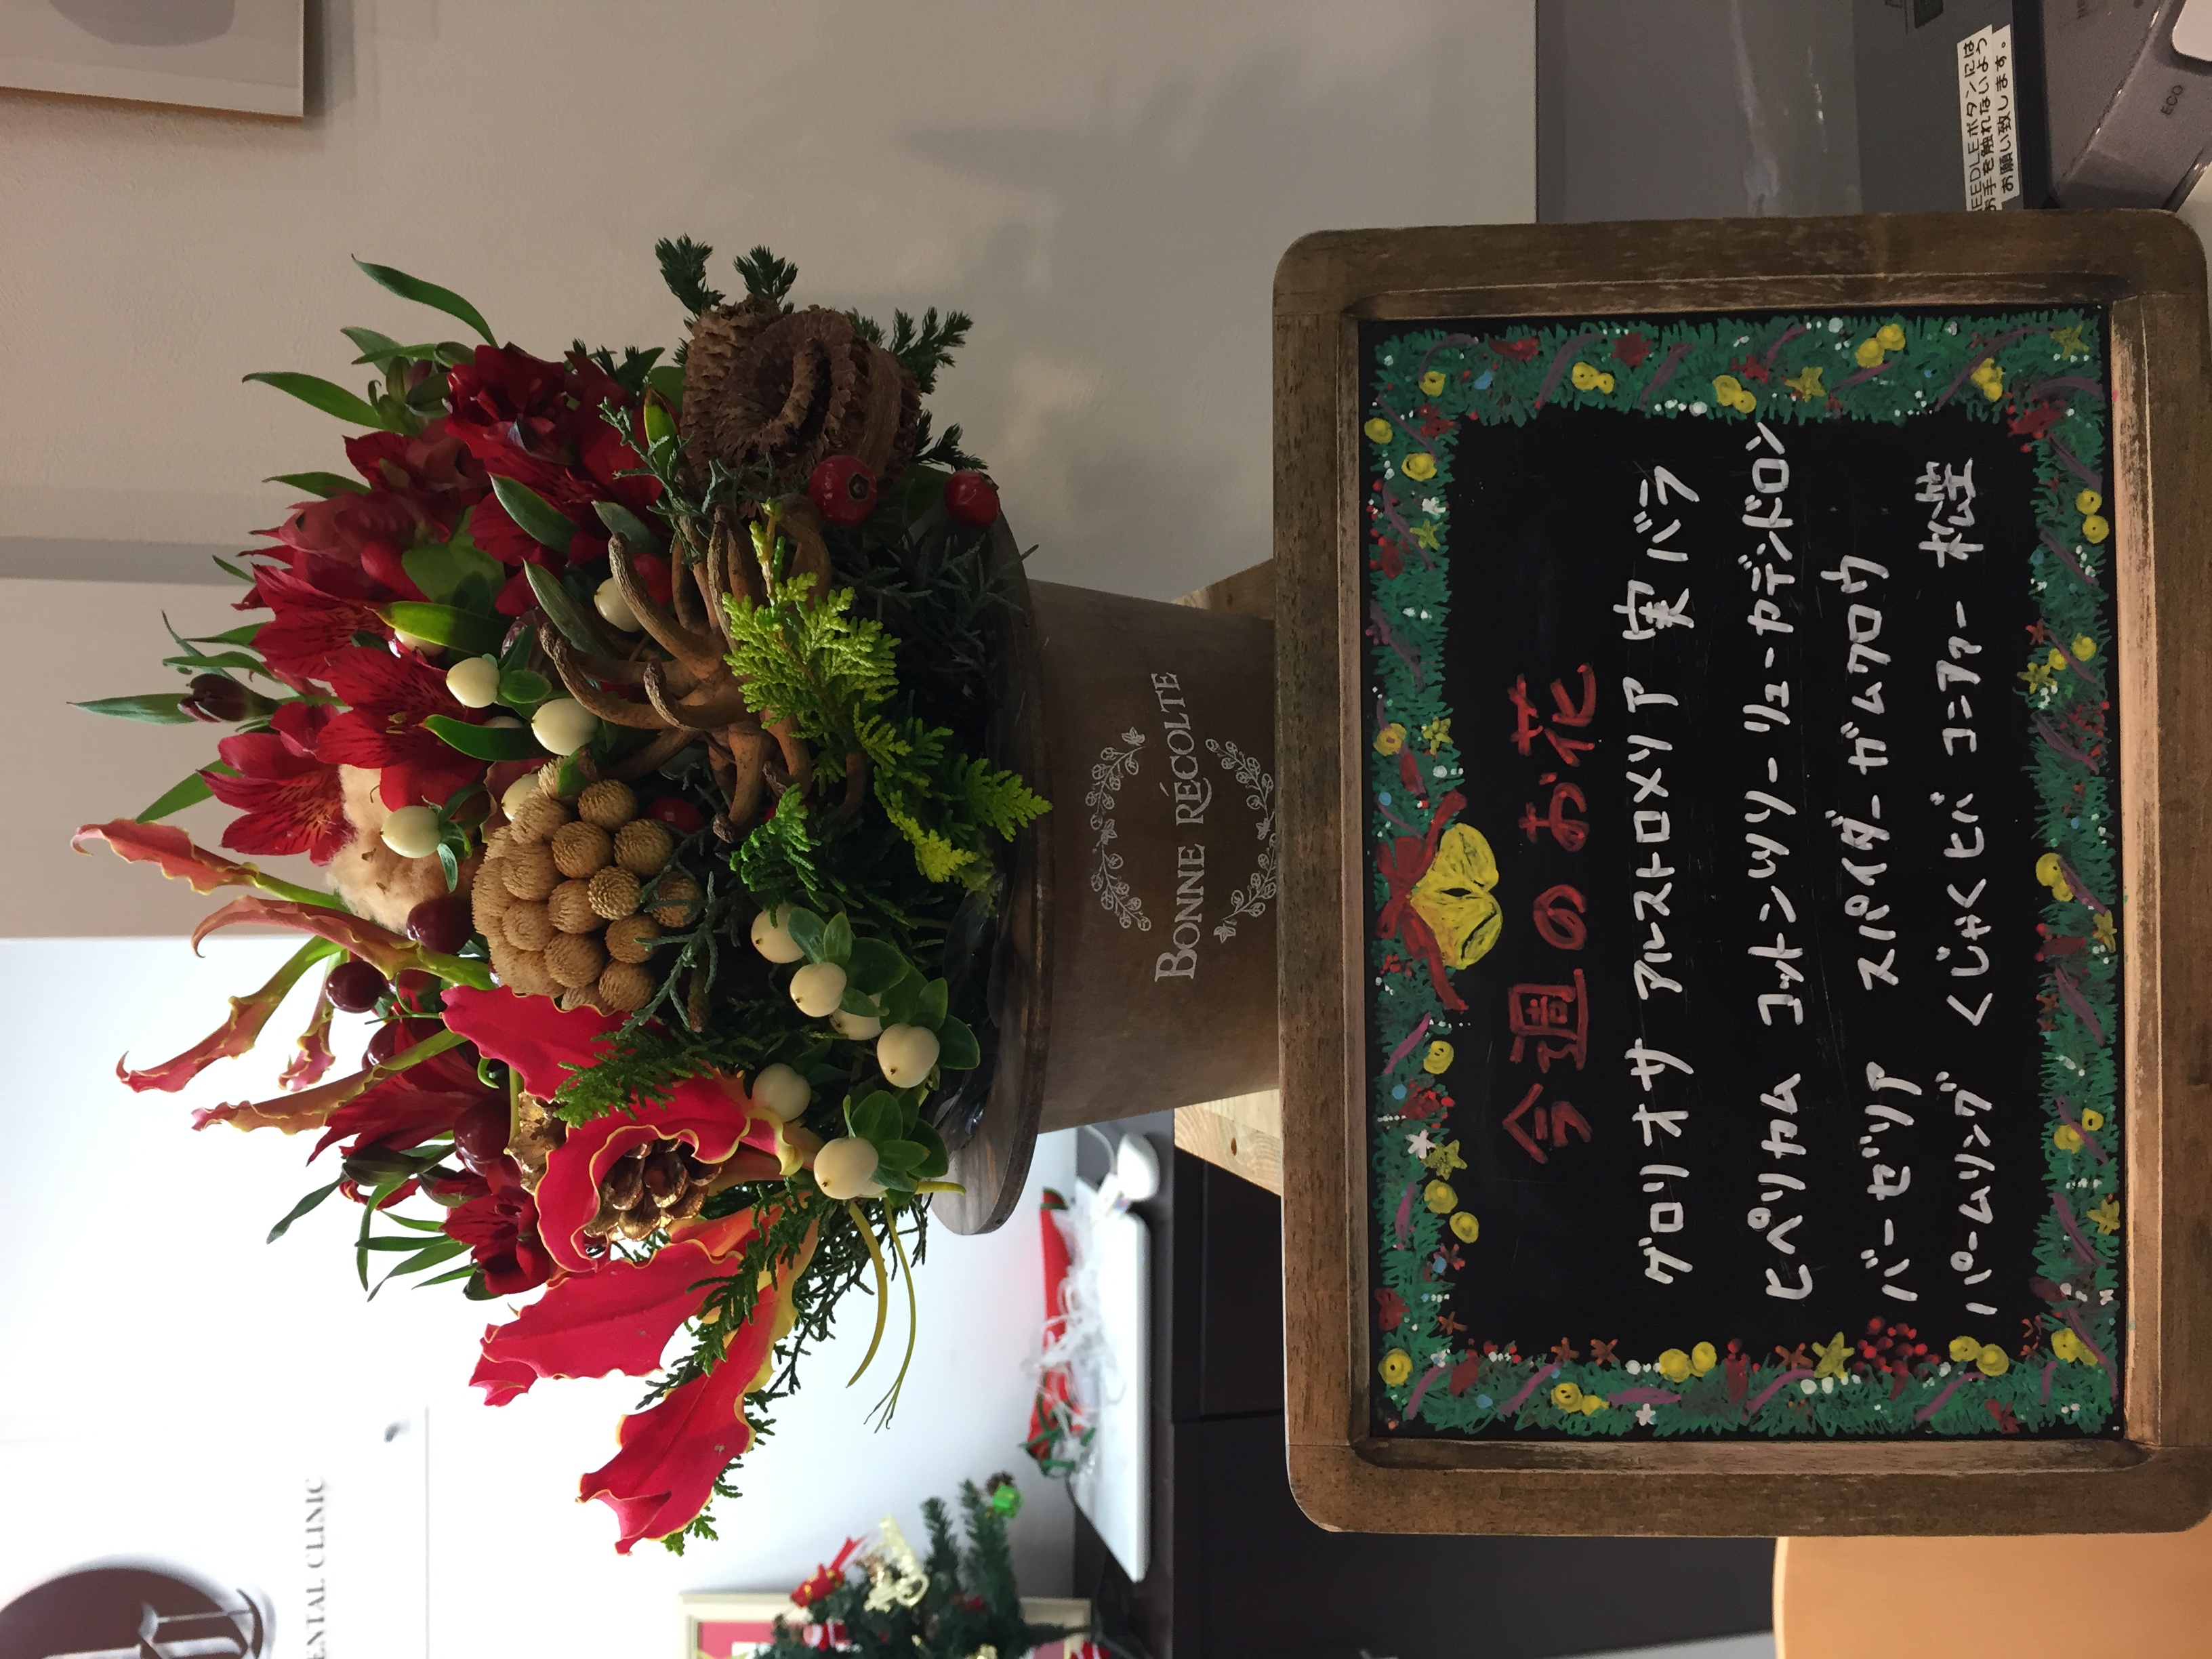 BONNE RÉCOLTE
今週のお花
グロリオサ アルストロメリア 実バラ
ヒペリカム コットンツリー リューカデンドロン
バーゼリア スパイダーガムクロウ
パームリング くじゃくヒバ コニファー 松笠
ENTAL CLINIC
EEDLEボタンには
お手を触れないよう
お願い致します。
ECO